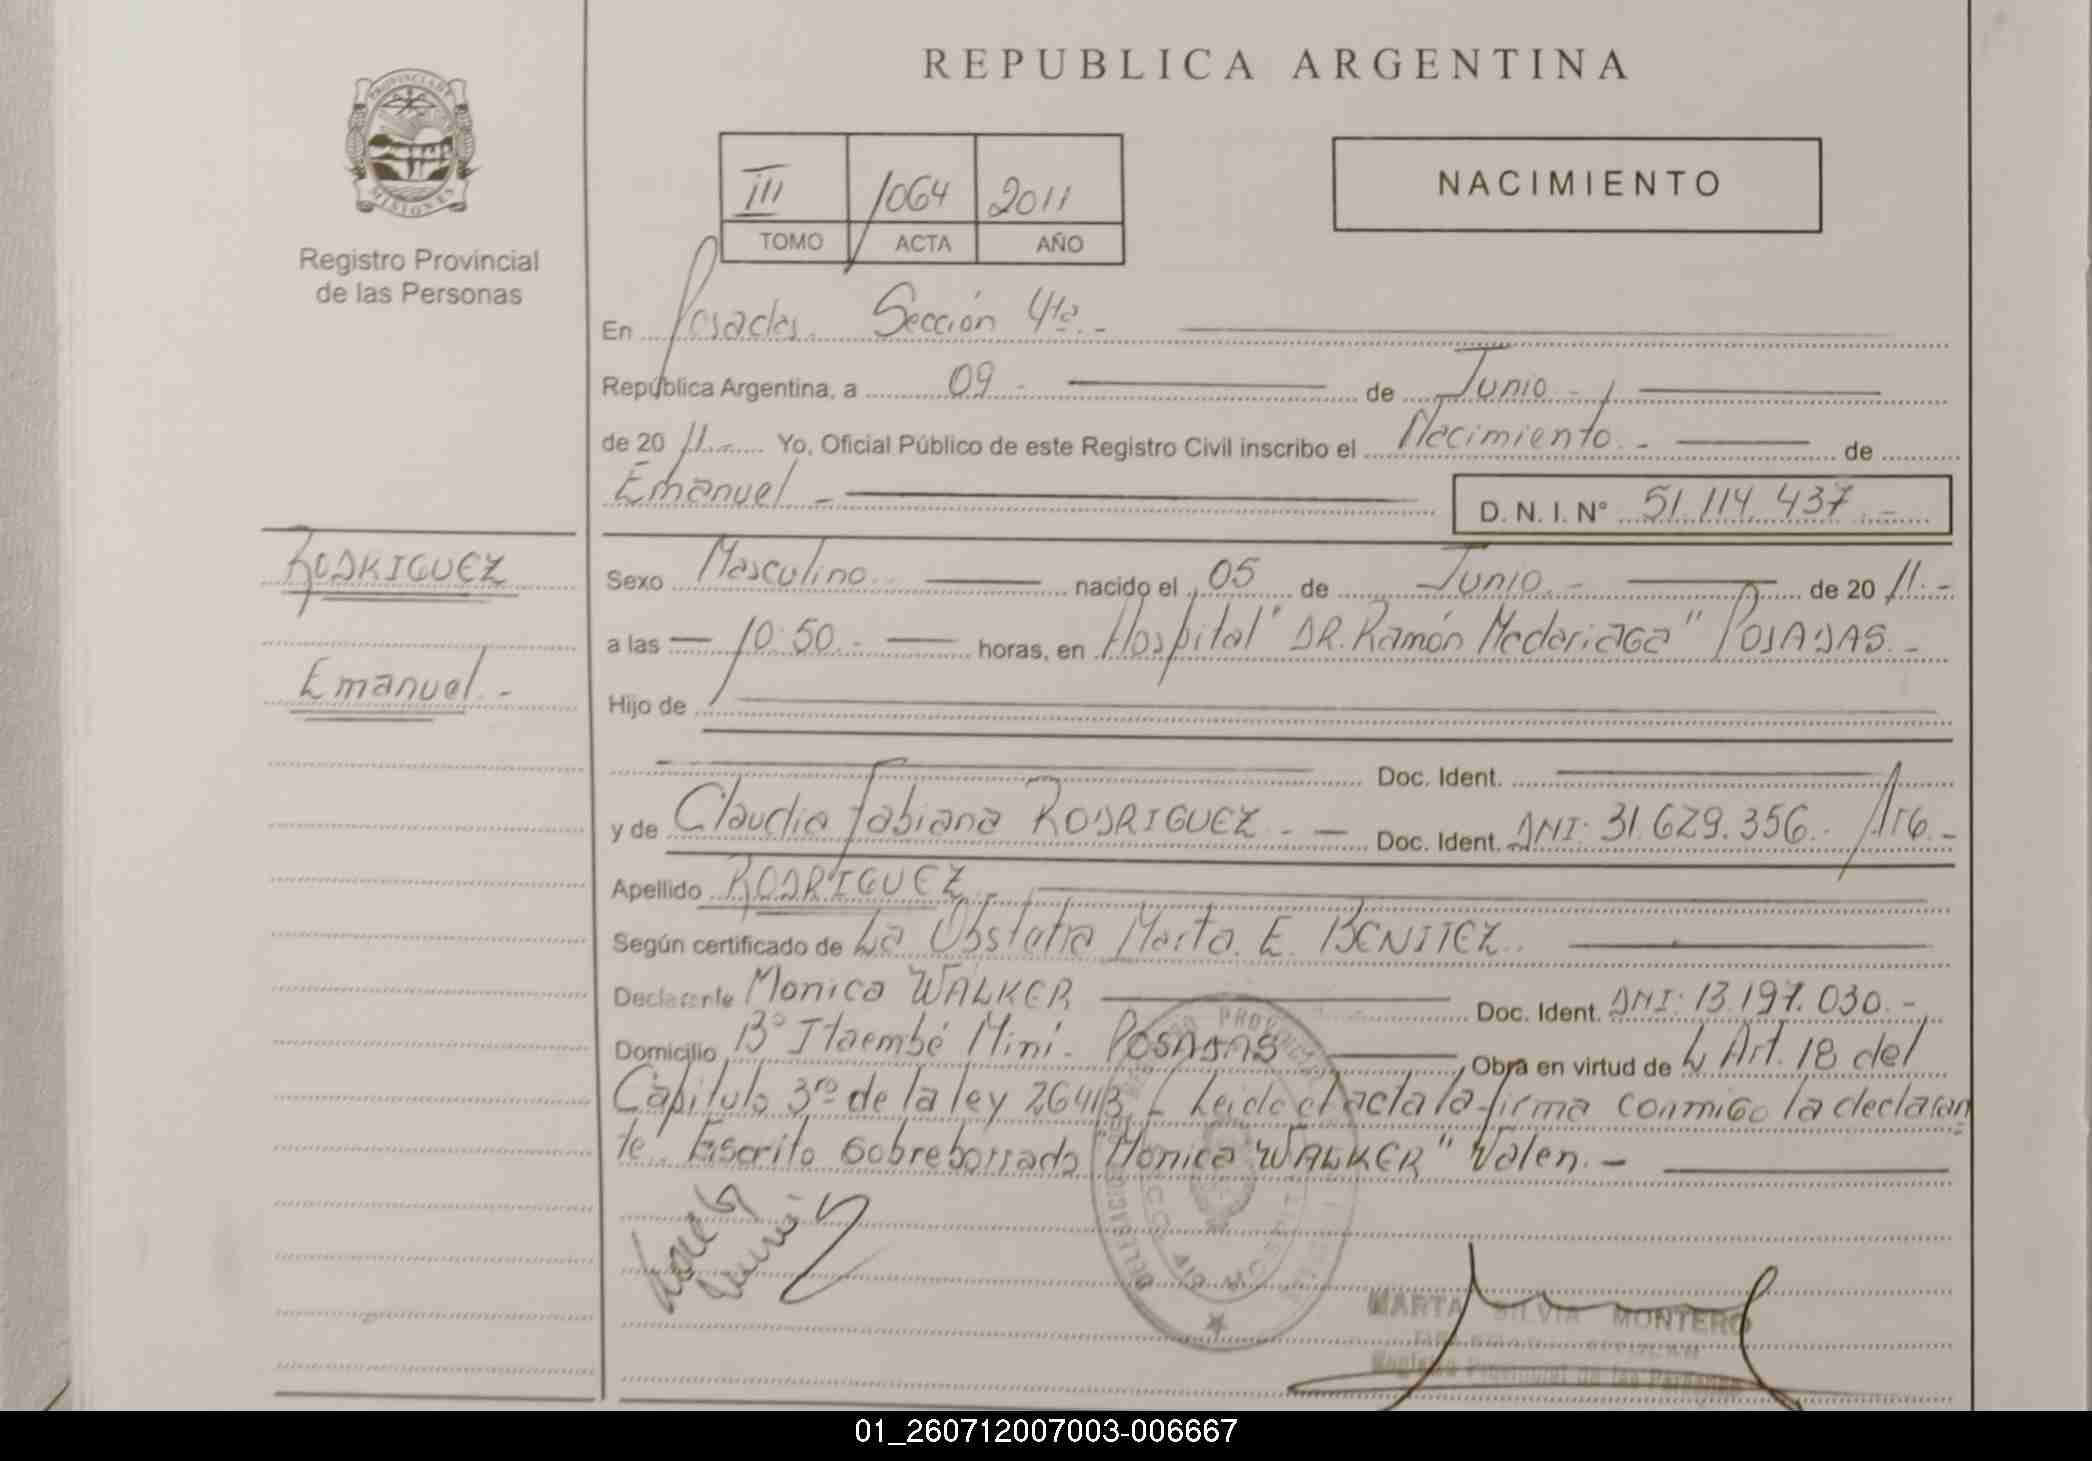 REPUBLICA ARGENTINA
PROVINCIA DE MISIONES
Registro Provincial
de las Personas
III 1064 2011
TOMO ACTA AÑO
NACIMIENTO
En Posadas. Sección 4ta.-
República Argentina, a 09.- de Junio.-
de 20 11.- Yo, Oficial Público de este Registro Civil inscribo el Nacimiento.- de
Emanuel.- D. N. I. N° 51.114.437.-
RODRIGUEZ
Emanuel.-
Sexo Masculino. nacido el 05 de Junio.- de 20 11.-
a las 10:50.- horas, en Hospital "DR. Ramón Madariaga" POSADAS.-
Hijo de
Doc. Ident.
y de Claudia Fabiana RODRIGUEZ.- Doc. Ident. DNI: 31.629.356.- Arg.-
Apellido RODRIGUEZ
Según certificado de La Obstetra Marta. E. BENITEZ.
Declarante Monica WALKER Doc. Ident. DNI: 13.197.030.-
Domicilio B° Itaembé Mini. POSADAS Obra en virtud de Art. 18 del
Capitulo 3ro de la ley 26413.- Leida el acta la firma conmigo la declaran
te. Escrito sobreborrado "Monica WALKER" Valen.-
MARTA SILVIA MONTERO
Registro Provincial de las Personas
01_260712007003-006667